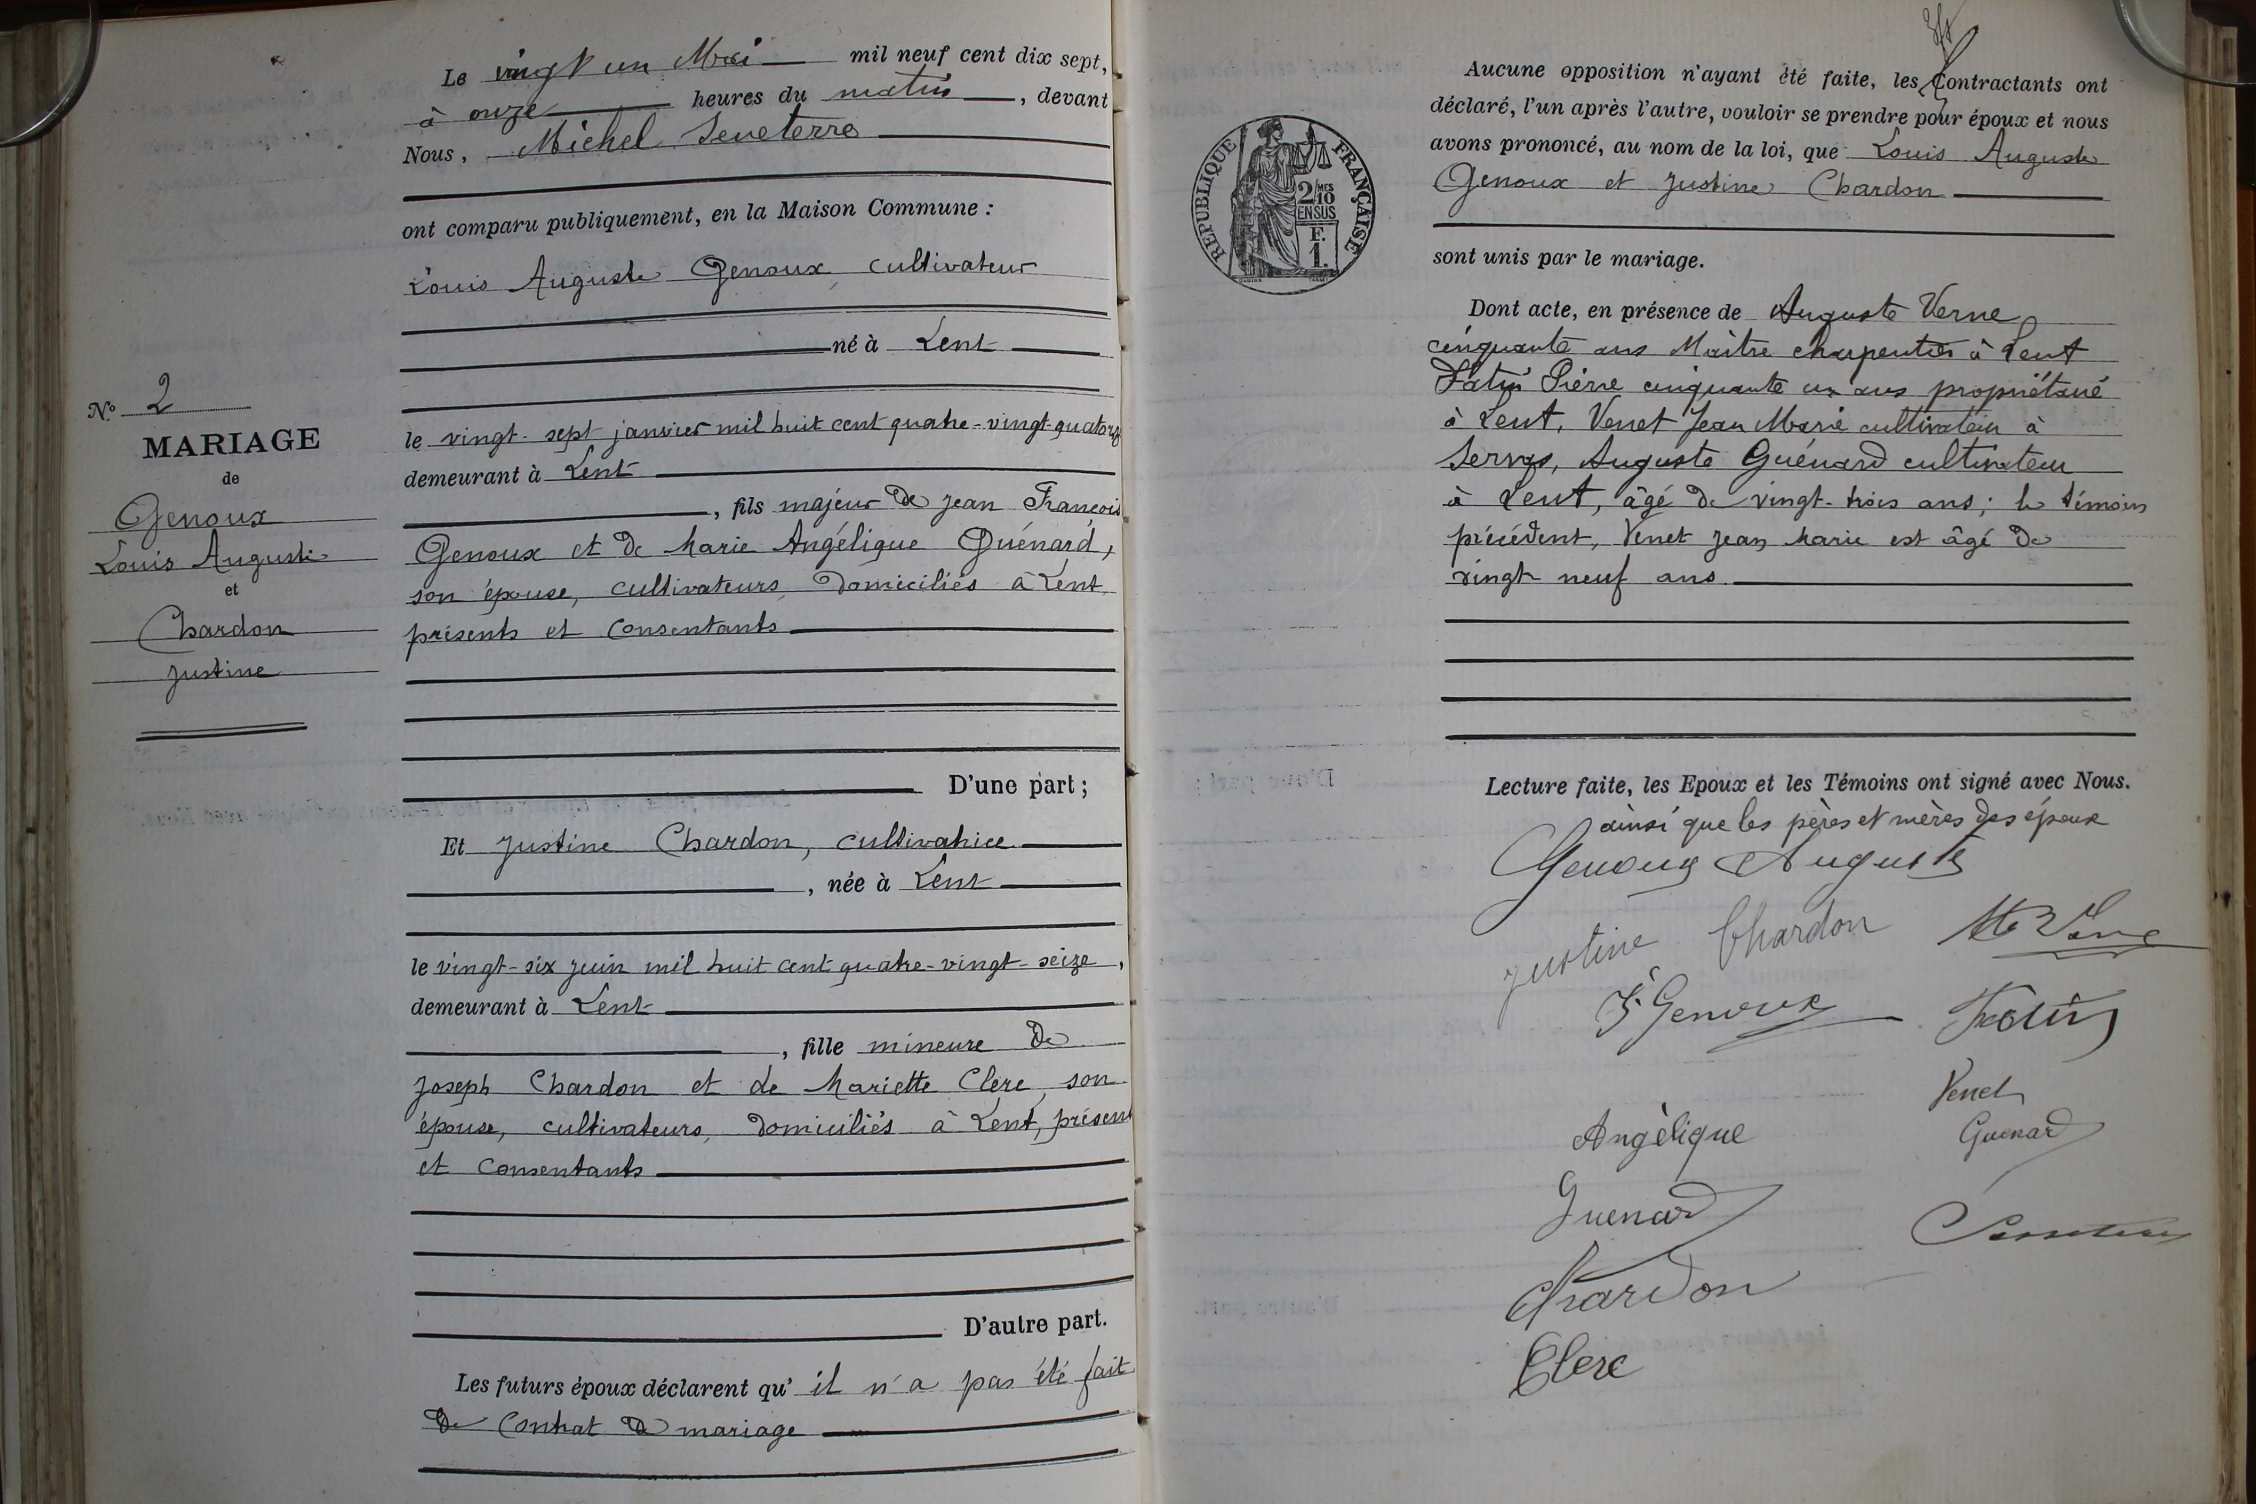 Le vingt un Mai mil neuf cent dix sept,
à onze heures du matin, devant
Nous, Michel Seneterre
ont comparu publiquement, en la Maison Commune :
Louis Auguste Genoux, cultivateur
né à Lent
le vingt-sept janvier mil huit cent quatre-vingt-quatorze
demeurant à Lent
, fils majeur de Jean François
Genoux et de Marie Angélique Guénard,
son épouse, cultivateurs, domiciliés à Lent
présents et consentants
N° 2
MARIAGE
de
Genoux
Louis Auguste
et
Chardon
Justine
D'une part ;
Et Justine Chardon, cultivatrice
, née à Lent
le vingt-six juin mil huit cent quatre-vingt-seize,
demeurant à Lent
, fille mineure de
Joseph Chardon et de Mariette Clerc, son
épouse, cultivateurs, domiciliés à Lent, présents
et consentants
D'autre part.
Les futurs époux déclarent qu'il n'a pas été fait
de contrat de mariage
RÉPUBLIQUE FRANÇAISE
2/10 MES
EN SUS
F.
1.
Aucune opposition n'ayant été faite, les Contractants ont
déclaré, l'un après l'autre, vouloir se prendre pour époux et nous
avons prononcé, au nom de la loi, que Louis Auguste
Genoux et Justine Chardon
sont unis par le mariage.
Dont acte, en présence de Auguste Verne
cinquante ans Maître charpentier à Lent
Fatin Pierre cinquante un ans propriétaire
à Lent, Venet Jean Marie cultivateur à
Servas, Auguste Guénard cultivateur
à Lent, âgé de vingt-trois ans ; le témoin
précédent, Venet Jean Marie est âgé de
vingt neuf ans.
Lecture faite, les Epoux et les Témoins ont signé avec Nous.
ainsi que les pères et mères des époux
Genoux Auguste
Justine Chardon
Ate Verne
F Genoux
Fatin
Venet
Angèlique
Guenard
Guenard
Chardon
Clerc